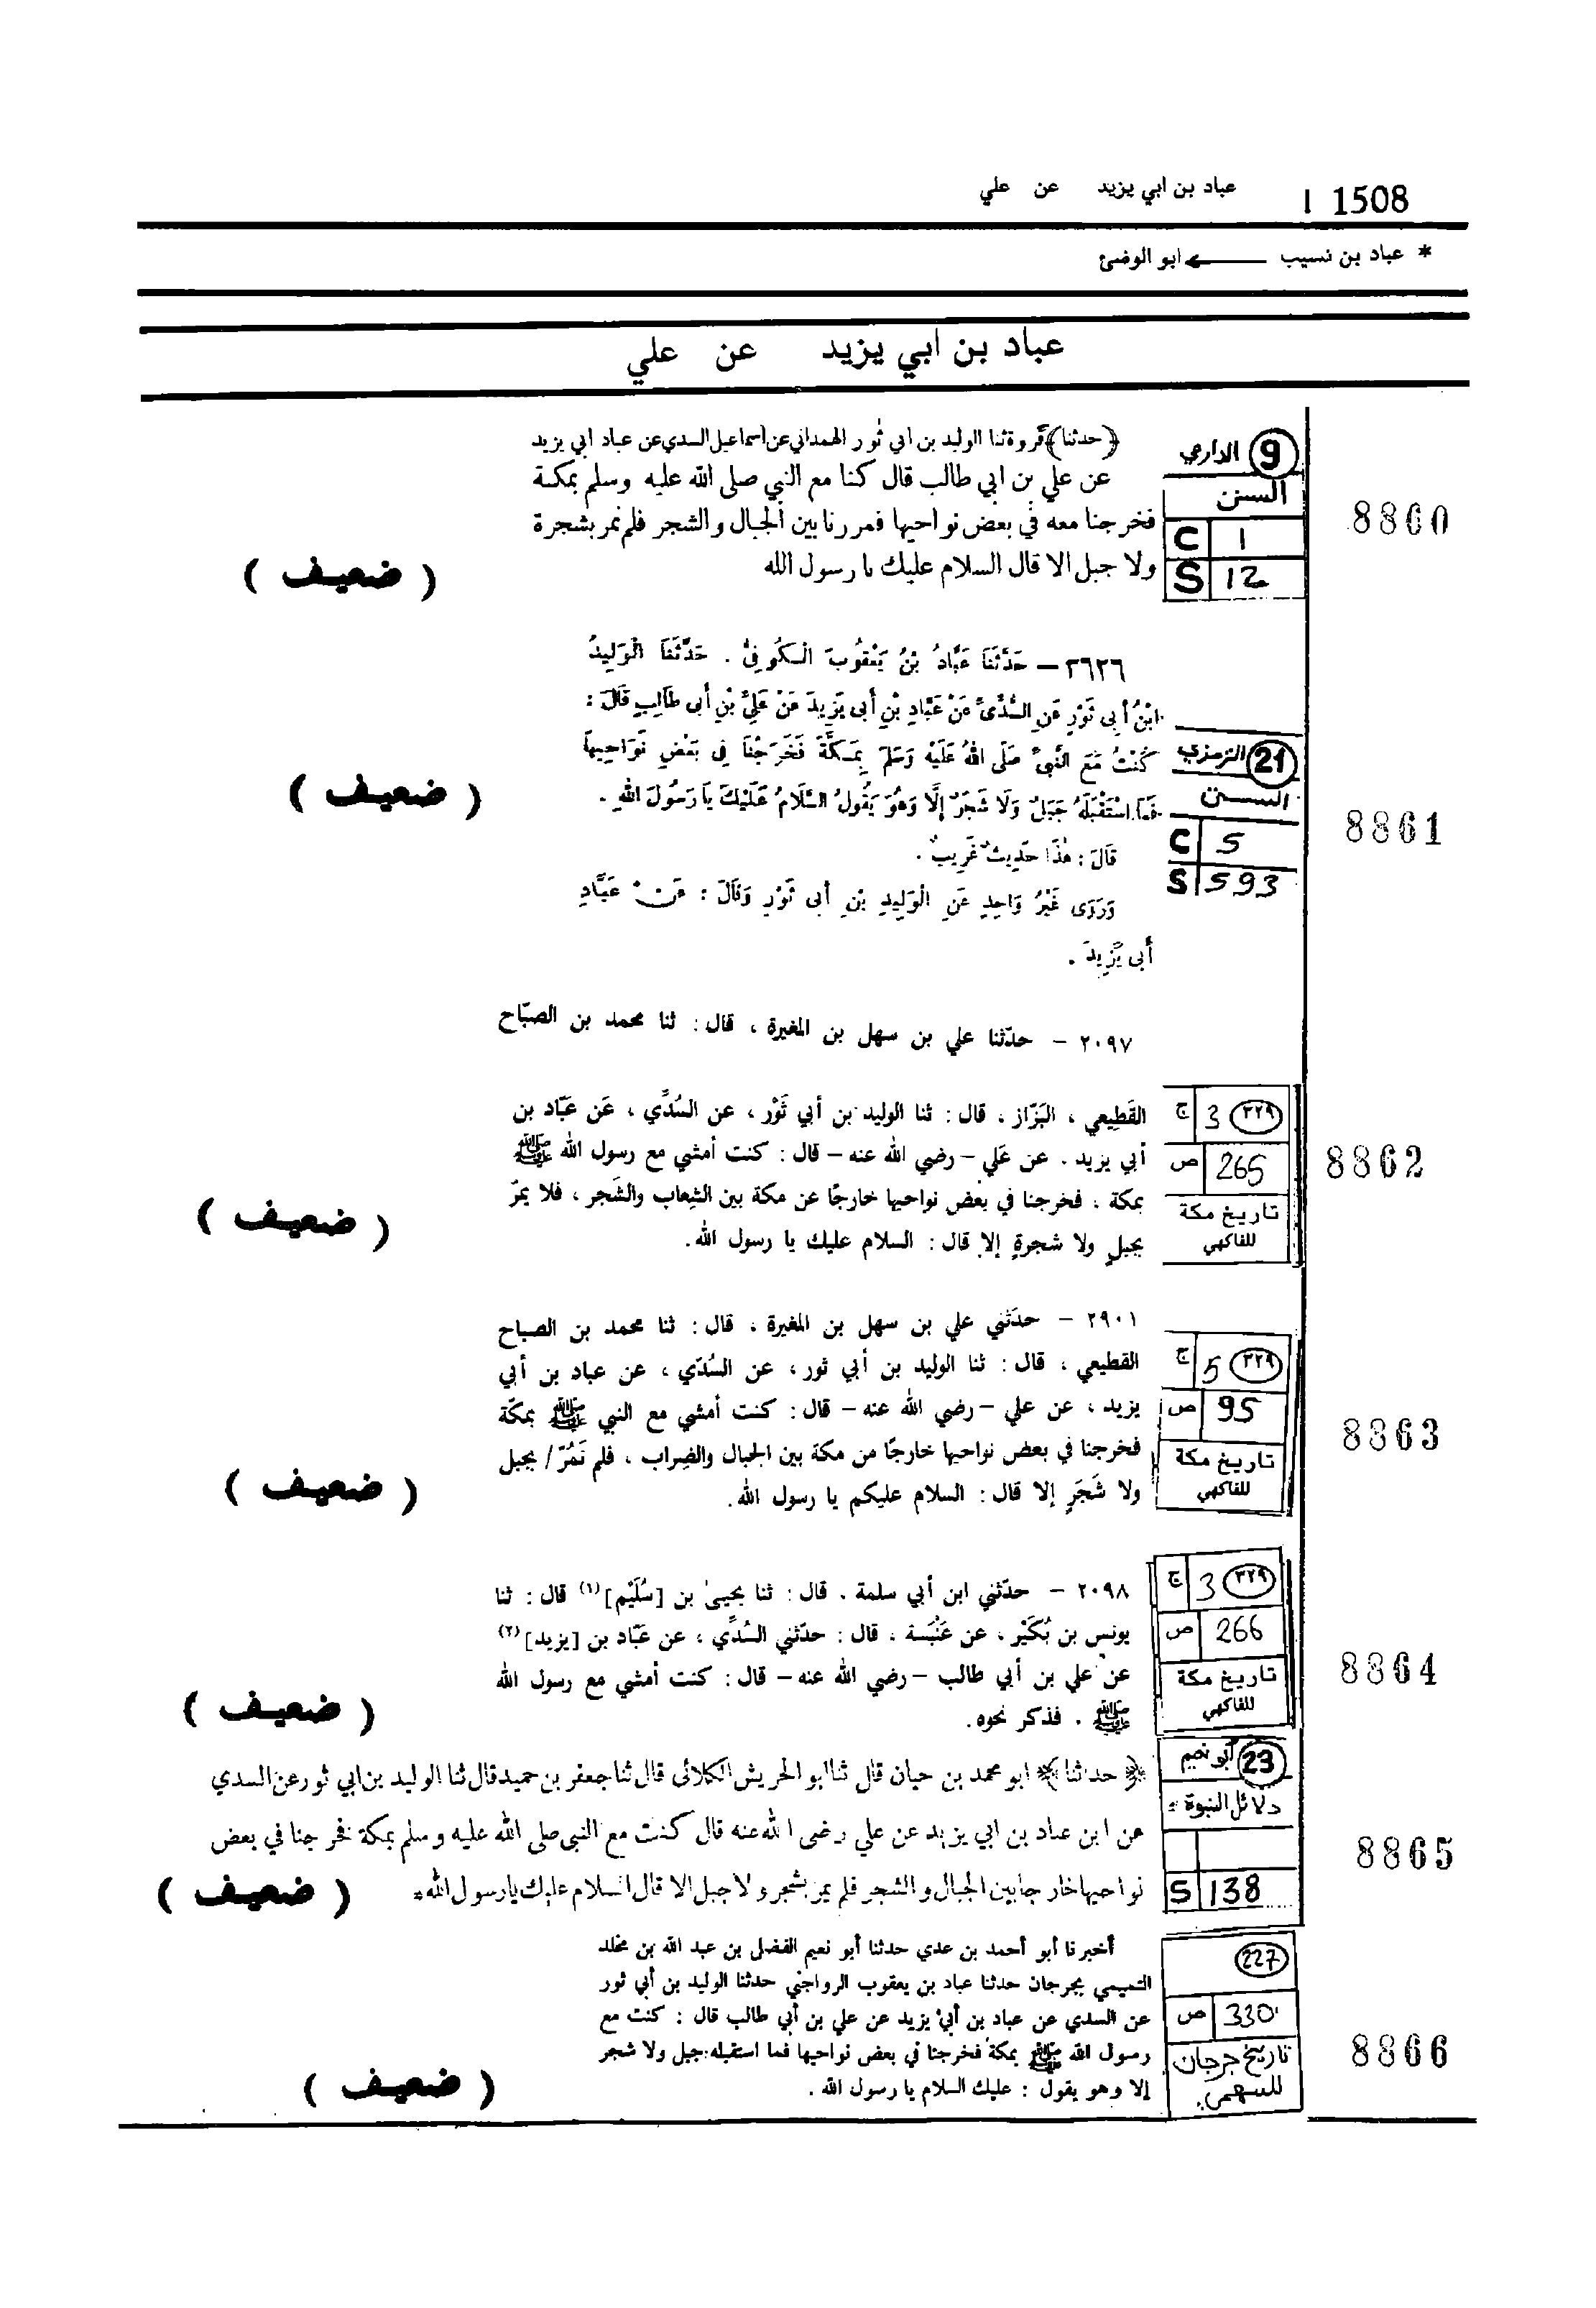 1508 ا عباد بن ابي يزيد عن علي
* عباد بن نسيب ابو الوضئ
عباد بن ابي يزيد عن علي
8860
9 الدارمي
السنن
C 1
S 12
﴿حدثنا﴾ فروة ثنا الوليد بن ابي ثور الهمداني عن اسماعيل السدي عن عباد ابي يزيد
عن علي بن ابي طالب قال كنا مع النبي صلى الله عليه وسلم بمكة
فخرجنا معه في بعض نواحيها فمررنا بين الجبال والشجر فلم نمر بشجرة
ولا جبل الا قال السلام عليك يا رسول الله
( ضعيف )
8861
21 الترمذي
السنن
C 5
S 593
٣٦٢٦ – حَدَّثَنَا عَبَّادُ بْنُ يَعْقُوبَ الْكُوفِيُّ . حَدَّثَنَا الْوَلِيدُ
ابْنُ أَبِي ثَوْرٍ عَنِ السُّدِّيِّ عَنْ عَبَّادِ بْنِ أَبِي يَزِيدَ عَنْ عَلِيِّ بْنِ أَبِي طَالِبٍ قَالَ :
كُنْتُ مَعَ النَّبِيِّ صَلَّى اللهُ عَلَيْهِ وَسَلَّمَ بِمَكَّةَ فَخَرَجْنَا فِي بَعْضِ نَوَاحِيهَا
فَمَا اسْتَقْبَلَهُ جَبَلٌ وَلَا شَجَرٌ إِلَّا وَهُوَ يَقُولُ السَّلَامُ عَلَيْكَ يَا رَسُولَ اللهِ .
قَالَ : هٰذَا حَدِيثٌ غَرِيبٌ .
وَرَوَى غَيْرُ وَاحِدٍ عَنِ الْوَلِيدِ بْنِ أَبِي ثَوْرٍ وَقَالَ : عَنْ عَبَّادِ
أَبِي يَزِيدَ .
( ضعيف )
8862
٣٢٩ 3 ج
265 ص
تاريخ مكة
للفاكهي
٢٠٩٧ – حدّثنا علي بن سهل بن المغيرة ، قال : ثنا محمد بن الصبّاح
القَطِيعي ، البَزّاز ، قال : ثنا الوليد بن أبي ثَوْر ، عن السُدِّي ، عَن عَبّاد بن
أبي يزيد . عن عَلي – رضي الله عنه – قال : كنت أمشي مع رسول الله ﷺ
بمكة ، فخرجنا في بعض نواحيها خارجًا عن مكة بين الشِعاب والشَجر ، فلا يمرّ
بجبلٍ ولا شجرةٍ إلا قال : السلام عليك يا رسول الله.
( ضعيف )
8863
٣٢٩ 5 ج
95 ص
تاريخ مكة
للفاكهي
٢٩٠١ – حدّثني علي بن سهل بن المغيرة ، قال : ثنا محمد بن الصباح
القطيعي ، قال : ثنا الوليد بن أبي ثور ، عن السُدّي ، عن عباد بن أبي
يزيد ، عن علي – رضي الله عنه – قال : كنت أمشي مع النبي ﷺ بمكّة
فخرجنا في بعض نواحيها خارجًا من مكة بين الجبال والضِراب ، فلم نَمُرّ / بجبل
ولا شَجَرٍ إلا قال : السلام عليكم يا رسول الله.
( ضعيف )
8864
٣٢٩ 3 ج
266 ص
تاريخ مكة
للفاكهي
٢٠٩٨ – حدّثني ابن أبي سلمة . قال : ثنا يحيىٰ بن [سُلَيْم](١) قال : ثنا
يونس بن بُكَيْر ، عن عَنْبَسة ، قال : حدّثني السُدِّي ، عن عَبّاد بن [يزيد](٢)
عن علي بن أبي طالب – رضي الله عنه – قال : كنت أمشي مع رسول الله
ﷺ . فذكر نحوه.
( ضعيف )
8865
23 أبو نعيم
دلائل النبوة
S 138
﴿ حدثنا ﴾ ابو محمد بن حيان قال ثنا ابو الحريش الكلائى قال ثنا جعفر بن حميد قال ثنا الوليد بن ابي ثور عن السدي
عن ابن عباد بن ابي يزيد عن علي رضى الله عنه قال كنت مع النبي صلى الله عليه وسلم بمكة فخرجنا في بعض
نواحيها خارجا بين الجبال والشجر فلم يمر بشجر ولا جبل الا قال السلام عليك يا رسول الله *
( ضعيف )
8866
227
330 ص
تاريخ جرجان
للسهمي
أخبرنا أبو أحمد بن عدي حدثنا أبو نعيم الفضل بن عبد الله بن مخلد
التميمي بجرجان حدثنا عباد بن يعقوب الرواجني حدثنا الوليد بن أبي ثور
عن السدي عن عباد بن أبي يزيد عن علي بن أبي طالب قال : كنت مع
رسول الله ﷺ بمكة فخرجنا في بعض نواحيها فما استقبله جبل ولا شجر
إلا وهو يقول : عليك السلام يا رسول الله .
( ضعيف )